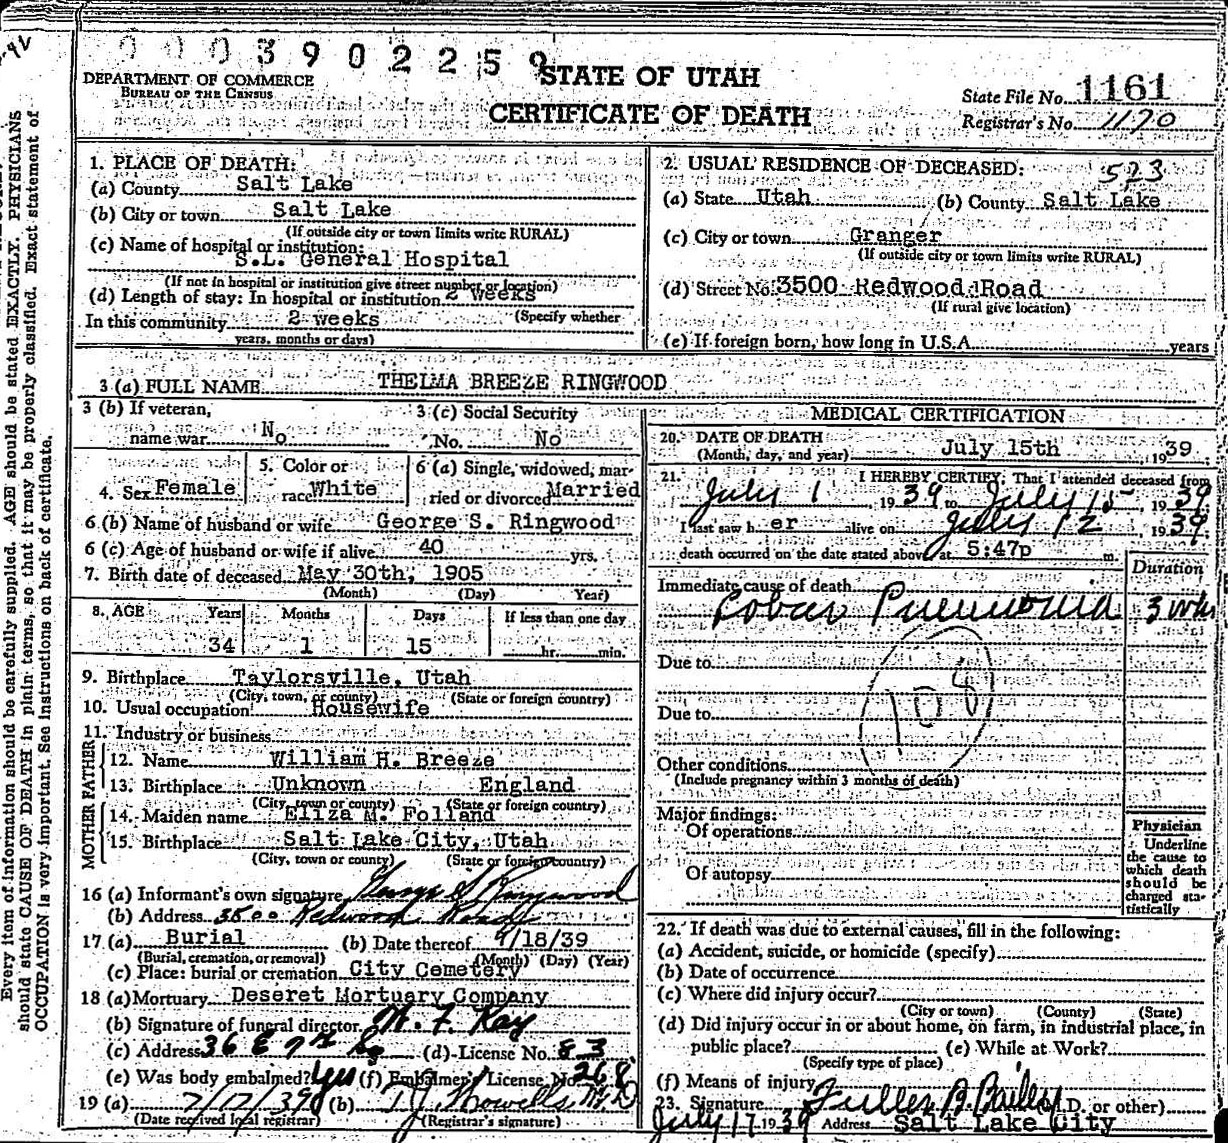 000390225
STATE OF UTAH
CERTIFICATE OF DEATH
DEPARTMENT OF COMMERCE
BUREAU OF THE CENSUS
State File No. 1161
Registrar's No. 1170
1. PLACE OF DEATH:
(a) County Salt Lake
(b) City or town Salt Lake
(If outside city or town limits write RURAL)
(c) Name of hospital or institution:
S.L. General Hospital
(If not in hospital or institution give street number or location)
(d) Length of stay: In hospital or institution 2 weeks
(Specify whether
In this community 2 weeks
years, months or days)
2. USUAL RESIDENCE OF DECEASED:
523
(a) State Utah (b) County Salt Lake
(c) City or town Granger
(If outside city or town limits write RURAL)
(d) Street No. 3500 Redwood Road
(If rural give location)
(e) If foreign born, how long in U.S.A. years
3 (a) FULL NAME THELMA BREEZE RINGWOOD
3 (b) If veteran,
name war No
3 (c) Social Security
No. No
4. Sex Female
5. Color or
race White
6 (a) Single, widowed, mar-
ried or divorced Married
6 (b) Name of husband or wife George S. Ringwood
6 (c) Age of husband or wife if alive 40 yrs.
7. Birth date of deceased May 30th, 1905
(Month) (Day) Year)
8. AGE Years Months Days If less than one day
34 1 15 hr. min.
9. Birthplace Taylorsville, Utah
(City, town, or county) (State or foreign country)
10. Usual occupation Housewife
11. Industry or business
FATHER
12. Name William H. Breeze
13. Birthplace Unknown England
(City, town or county) (State or foreign country)
MOTHER
14. Maiden name Eliza M. Folland
15. Birthplace Salt Lake City, Utah
(City, town or county) (State or foreign country)
16 (a) Informant's own signature George S Ringwood
(b) Address 3500 Redwood Road
17 (a) Burial (b) Date thereof 7/18/39
(Burial, cremation, or removal) (Month) (Day) (Year)
(c) Place: burial or cremation City Cemetery
18 (a) Mortuary Deseret Mortuary Company
(b) Signature of funeral director
(c) Address 36 E 7th So (d) License No. 83
(e) Was body embalmed? Yes (f) Embalmer's License No. 268
19 (a) 7/17/39 (b) T J Howells M.D
(Date received local registrar) (Registrar's signature)
MEDICAL CERTIFICATION
20. DATE OF DEATH
(Month, day, and year) July 15th 1939
21. I HEREBY CERTIFY, That I attended deceased from
July 1 1939 to July 15, 1939
I last saw her alive on July 12, 1939
death occurred on the date stated above at 5:47p m.
Duration
Immediate cause of death
Lobar Pneumonia 3 wks
Due to
108
Due to
Other conditions
(Include pregnancy within 3 months of death)
Major findings:
Of operations
Of autopsy
Physician
Underline
the cause to
which death
should be
charged sta-
tistically
22. If death was due to external causes, fill in the following:
(a) Accident, suicide, or homicide (specify)
(b) Date of occurrence
(c) Where did injury occur?
(City or town) (County) (State)
(d) Did injury occur in or about home, on farm, in industrial place, in
public place? (e) While at Work?
(Specify type of place)
(f) Means of injury
23. Signature Fuller B Bailey (M.D. or other)
July 17 1939 Address Salt Lake City
Every item of information should be carefully supplied. AGE should be stated EXACTLY. PHYSICIANS
should state CAUSE OF DEATH in plain terms, so that it may be properly classified. Exact statement of
OCCUPATION is very important. See instructions on back of certificate.